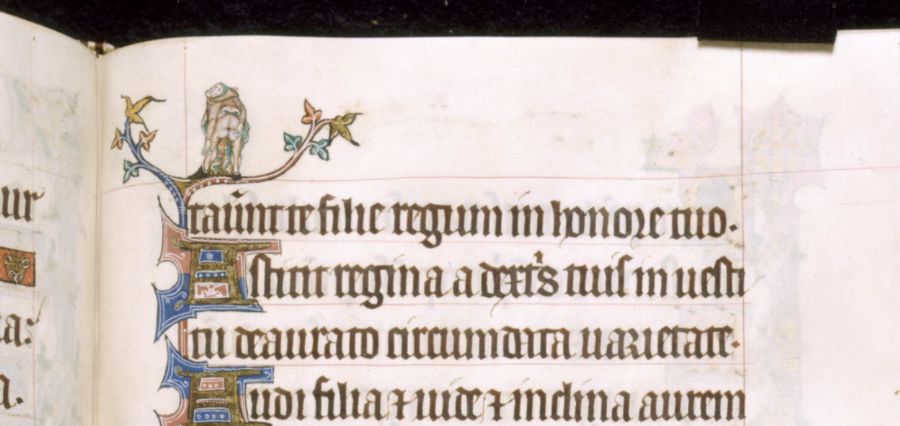 ur
taũnt te filie regum in honore tuo.
Astitit regina a dextrs tuis in uesti
tu deaurato circumdata uarietate.
Audi filia ⁊ uide ⁊ inclina aurem